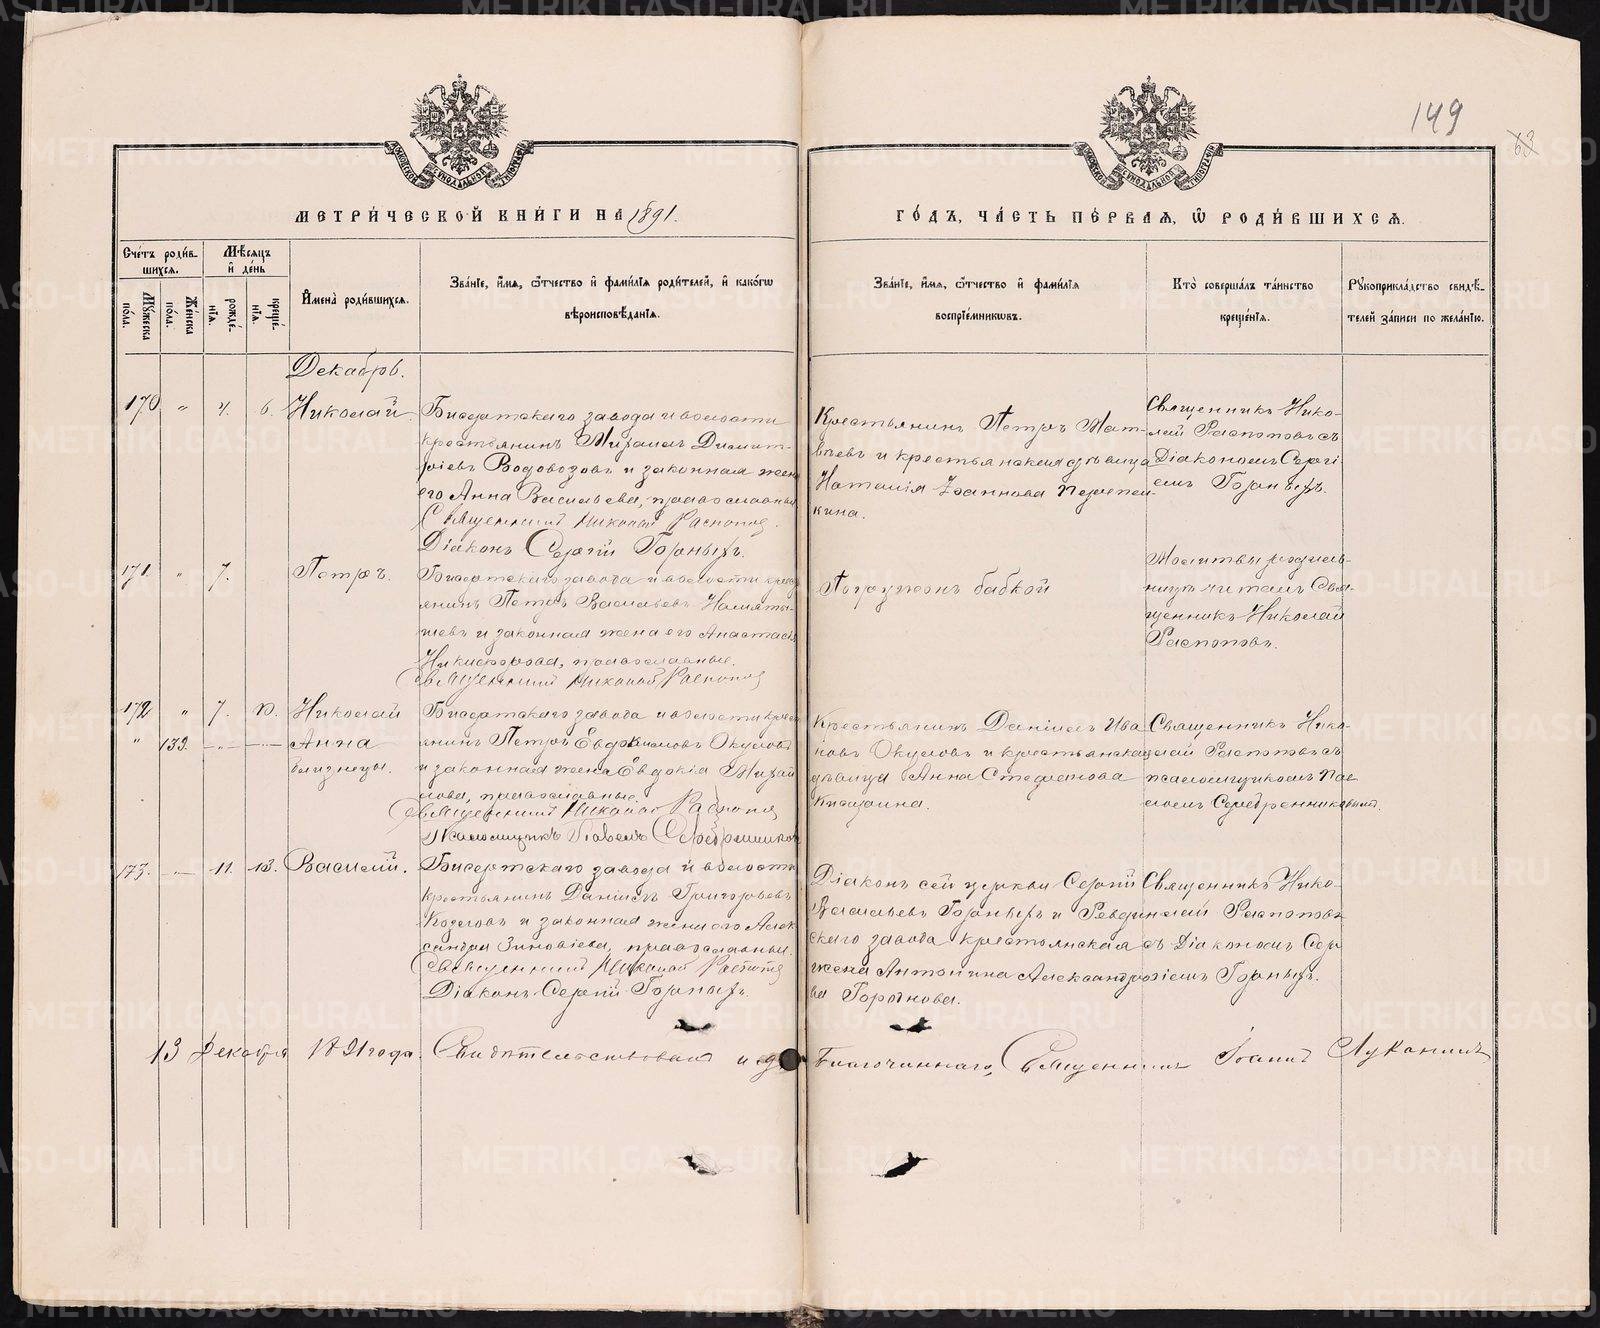 149
63
МЕТРИЧЕСКОЙ КНИГИ НА 1891.
ГОДЪ, ЧАСТЬ ПЕРВАЯ, Ѽ РОДИВШИХСЯ.
Счетъ родив-
шихся.
Мѣсяцъ
и день
Мужеска
пола.
Женска
пола.
рожде-
нія.
креще-
нія.
Имена родившихся.
Званіе, имя, ѿчество и фамилія родителей, и какогѡ
вѣроисповѣданія.
Званіе, имя, ѿчество и фамилія
воспріемникѡвъ.
Кто совершалъ таинство
крещенія.
Рукоприкладство свидѣ-
телей записи по желанію.
Декабрь.
170 " 4. 6. Николай
Бисертскаго завода и волости
крестьянинъ Михаилъ Димит-
ріевъ Водовозовъ и законная жена
его Анна Васильева, православные
Священникъ Николай Распоповъ.
Діаконъ Сергій Горныхъ.
Крестьянинъ Петръ Мат-
вѣевъ и крестьянская дѣвица
Наталія Іоаннова Перепел-
кина.
Священникъ Нико-
лай Распоповъ съ
Діакономъ Сергі-
емъ Горныхъ.
171. " 7. Петръ.
Бисертскаго завода и волости крест
янинъ Петръ Васильевъ
и законная жена его Анастасія
Никифорова, православные.
Священникъ Николай Распоповъ
Погруженъ бабкой
Молитвы родиль-
ницѣ читалъ Свя-
щенникъ Николай
Распоповъ.
172 " 7. Николай
" 139. Анна
близнецы.
Бисертскаго завода и волости крест
янинъ Петръ Евдокимовъ Окуловъ
и законная жена Евдокія Михай
лова, православные.
Священникъ Николай Распоповъ
Псаломщикъ Павелъ Серебренниковъ
Крестьянинъ Даніилъ Ива
новъ Окуловъ и крестьянская
дѣвица Анна Стефанова
Священникъ Нико-
лай Распоповъ съ
псаломщикомъ Пав
ломъ Серебренниковымъ.
173. " 11. 13. Василій.
Бисертскаго завода и волости
крестьянинъ Даніилъ Григорьевъ
и законная жена его Алек
сандра Зиновіева, православные.
Священникъ Николай Распоповъ
Діаконъ Сергій Горныхъ.
Діаконъ сей церкви Сергій
Васильевъ Горныхъ и Ревдин
скаго завода крестьянская
жена Антонина Александро
ва
Священникъ Нико-
лай Распоповъ
съ Діакономъ Сер
гіемъ Горныхъ.
13 Декабря 1891 года. Свидѣтельствовалъ и д Благочиннаго, Священникъ Іоаннъ Луканинъ